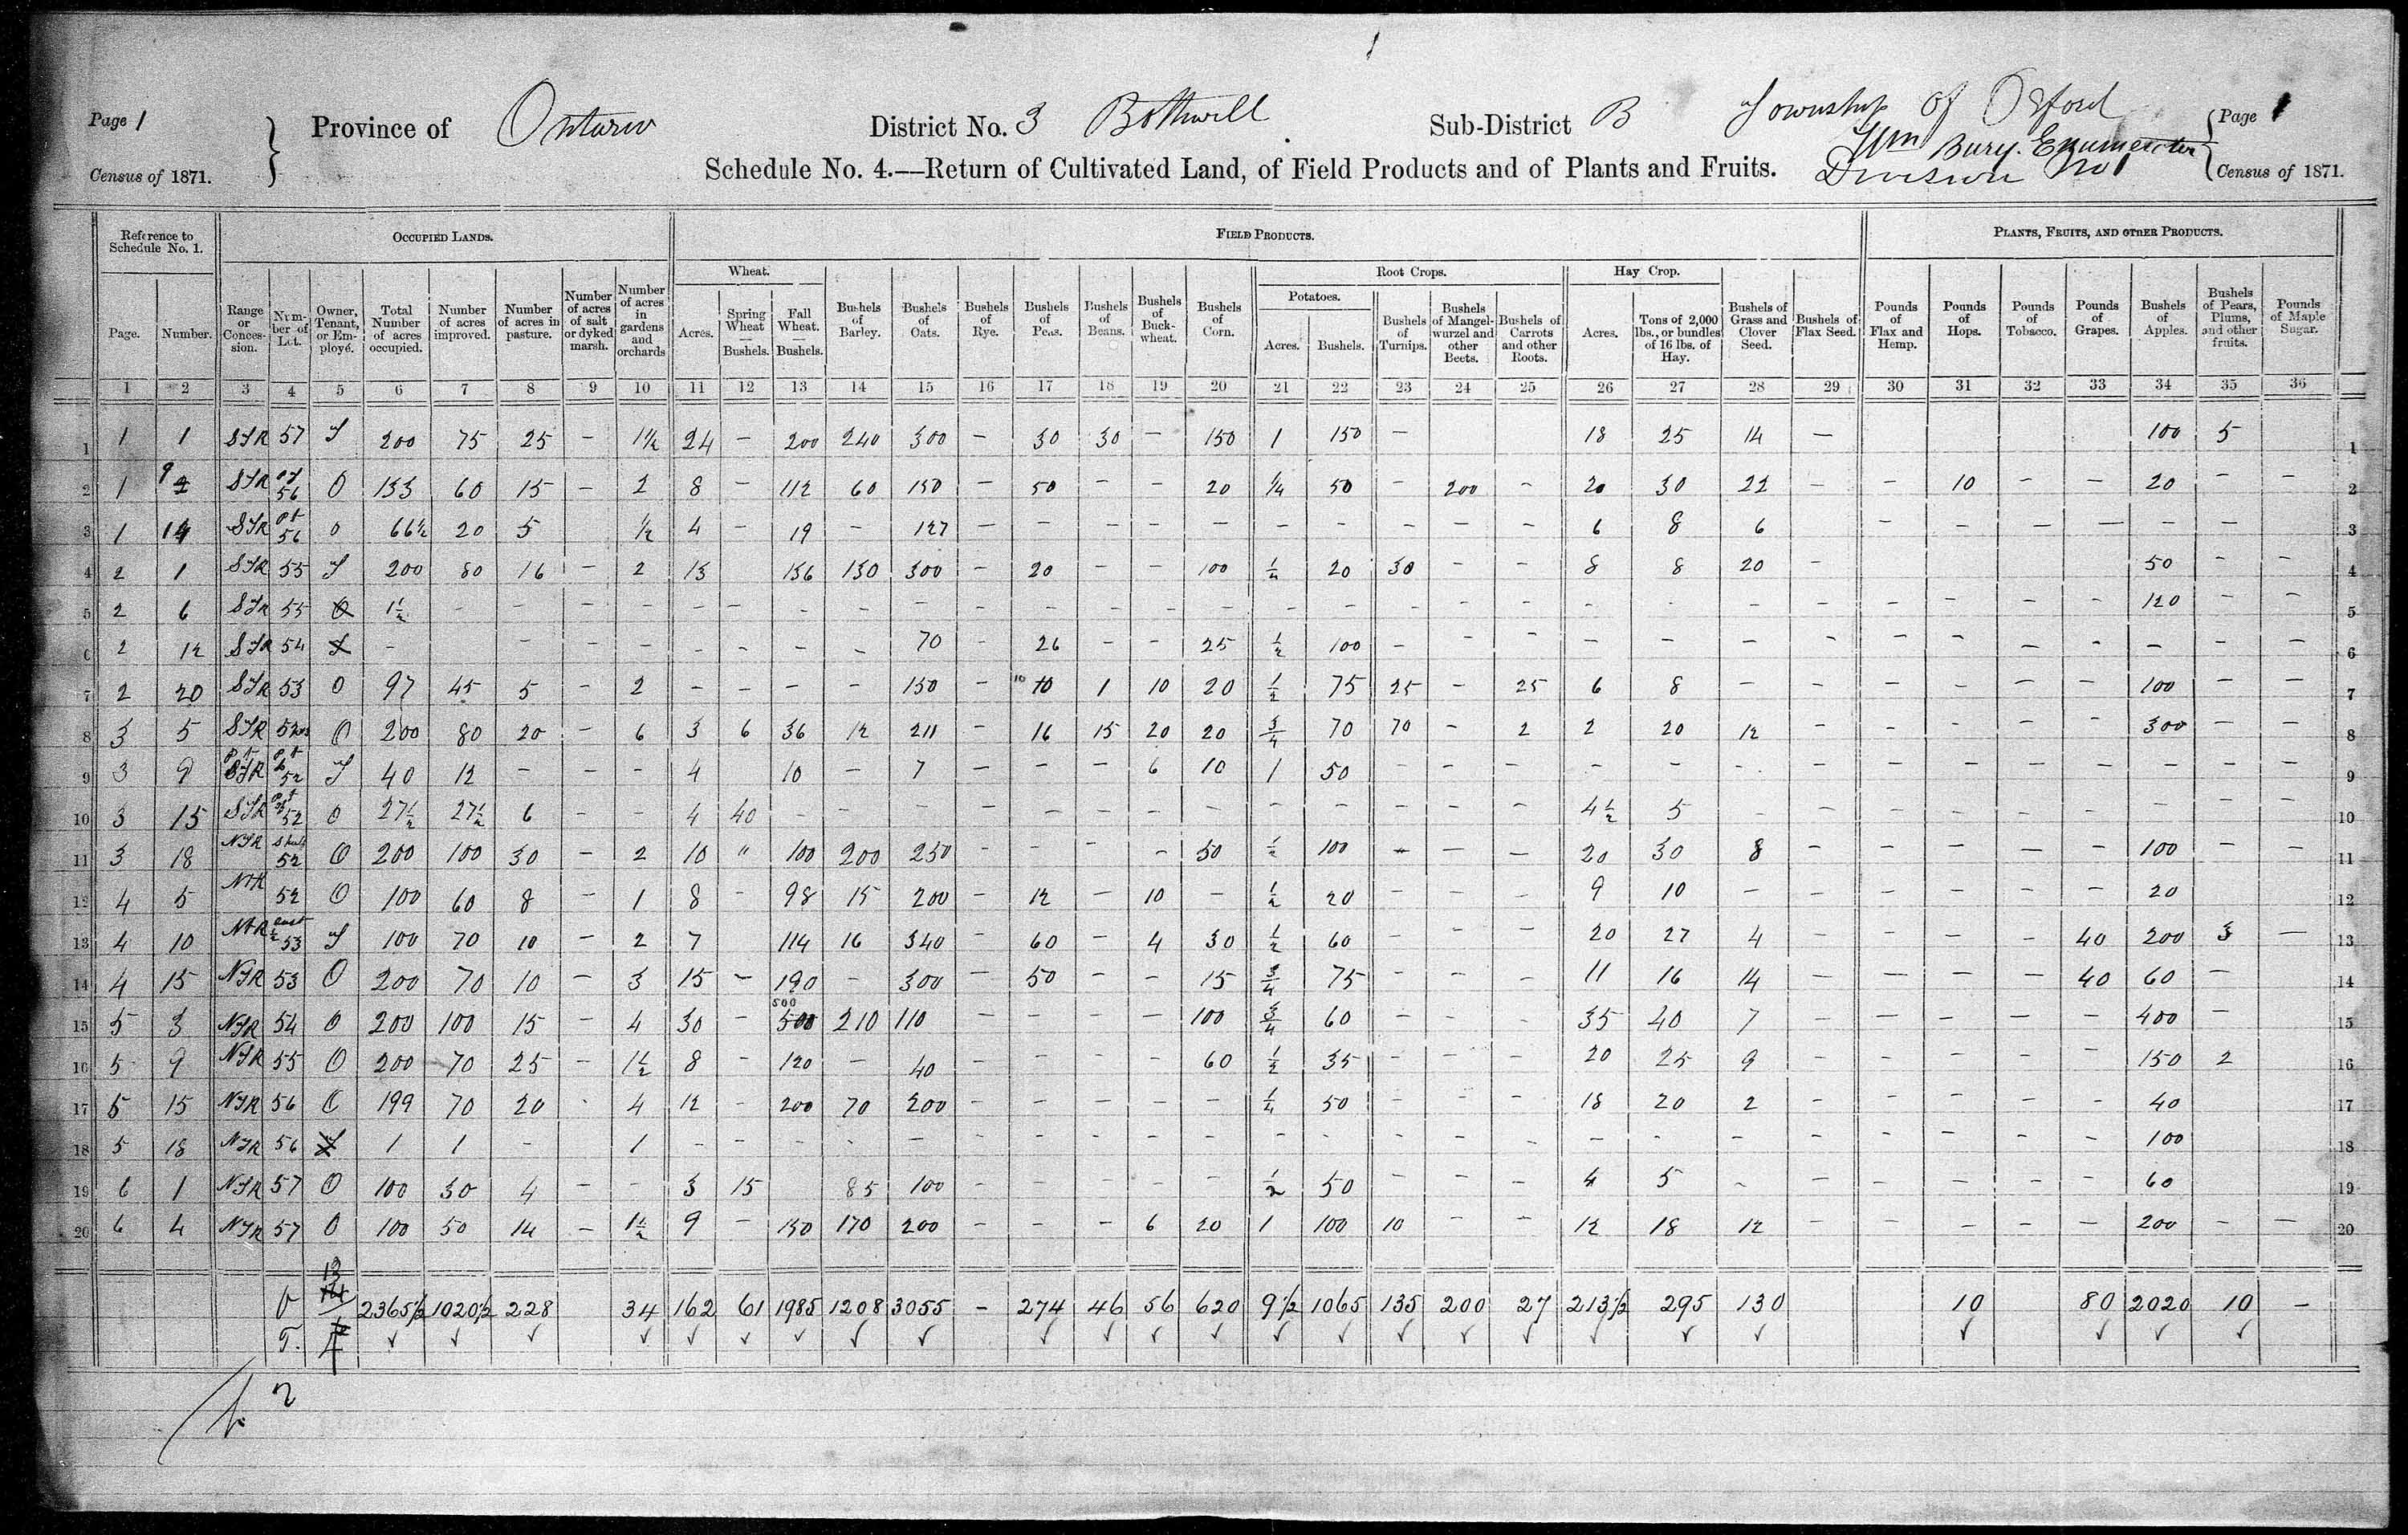 Page 1
Census of 1871.
Province of Ontario
District No. 3 Bothwell
Sub-District B Township of Orford
Wm Bury. Enumerator
Division No 1
Page 1
Census of 1871.
Schedule No. 4.—Return of Cultivated Land, of Field Products and of Plants and Fruits.
Reference to Schedule No. 1. OCCUPIED LANDS. FIELD PRODUCTS. PLANTS, FRUITS, AND OTHER PRODUCTS.
Wheat. Root Crops. Hay Crop.
Potatoes.
Page. Number. Range or Conces-sion. Num-ber of Lot. Owner, Tenant, or Em-ployé. Total Number of acres occupied. Number of acres improved. Number of acres in pasture. Number of acres of salt or dyked marsh. Number of acres in gardens and orchards Acres. Spring Wheat — Bushels. Fall Wheat. — Bushels. Bushels of Barley. Bushels of Oats. Bushels of Rye. Bushels of Peas. Bushels of Beans. Bushels of Buck-wheat. Bushels of Corn. Acres. Bushels. Bushels of Turnips. Bushels of Mangel-wurzel and other Beets. Bushels of Carrots and other Roots. Acres. Tons of 2,000 lbs., or bundles of 16 lbs. of Hay. Bushels of Grass and Clover Seed. Bushels of Flax Seed. Pounds of Flax and Hemp. Pounds of Hops. Pounds of Tobacco. Pounds of Grapes. Bushels of Apples. Bushels of Pears, Plums, and other fruits. Pounds of Maple Sugar.
1 2 3 4 5 6 7 8 9 10 11 12 13 14 15 16 17 18 19 20 21 22 23 24 25 26 27 28 29 30 31 32 33 34 35 36
1 1 1 STR 57 T 200 75 25 – 1½ 24 – 200 240 300 – 30 30 – 150 1 150 – 18 25 14 – 100 5 1
2 1 9 STR pt 56 O 133 60 15 – 2 8 – 112 60 150 – 50 – – 20 ¼ 50 – 200 – 20 30 22 – – 10 – – 20 – – 2
3 1 14 STR pt 56 O 66½ 20 5 ½ 4 – 19 – 127 – – – – – – – – – – 6 8 6 – – – – – – – 3
4 2 1 STR 55 T 200 80 16 – 2 13 136 130 300 – 20 – – 100 ¼ 20 30 – – 8 8 20 – 50 – – 4
5 2 6 STR 55 O 1½ – – – – – – – – – – – – – – – – – – – – – – – – – – – 120 – – 5
6 2 12 STR 54 T – – – – – – – – – 70 – 26 – – 25 ½ 100 – – – – – – – – – – – – – – 6
7 2 20 STR 53 O 97 45 5 – 2 – – – – 150 – 10 1 10 20 ½ 75 25 – 25 6 8 – – – – – – 100 – – 7
8 3 5 STR 52 O 200 80 20 – 6 3 6 36 12 211 16 15 20 20 ¾ 70 70 – 2 2 20 12 – – – – – 300 – – 8
9 3 9 pt STR pt 52 T 40 12 – – – 4 10 – 7 – – – 6 10 1 50 – – – – – – – – – – – – – – 9
10 3 15 STR pt 52 O 27½ 27½ 6 – – 4 40 – – – – – – – – – – – – – 4½ 5 – – – – – – – – – 10
11 3 18 NTR S half 52 O 200 100 30 – 2 10 " 100 200 250 – – – – 50 ½ 100 – – – 20 30 8 – – – – – 100 – – 11
12 4 5 NTR 52 O 100 60 8 – 1 8 – 98 15 200 – 12 – 10 – ½ 20 – – – 9 10 – – – – – – 20 12
13 4 10 NTR east ½ 53 T 100 70 10 – 2 7 114 16 340 – 60 – 4 30 ½ 60 – – – 20 27 4 – – – – 40 200 3 – 13
14 4 15 NTR 53 O 200 70 10 – 3 15 – 190 – 300 – 50 – – 15 ¾ 75 – – – 11 16 14 – – – – 40 60 – 14
15 5 3 NTR 54 O 200 100 15 – 4 30 – 500 210 110 – – – – 100 ¾ 60 – – – 35 40 7 – – – – – 400 – 15
16 5 9 NTR 55 O 200 70 25 – 1½ 8 – 120 – 40 – – – – 60 ½ 35 – – – 20 25 9 – – – – – 150 2 16
17 5 15 NTR 56 O 199 70 20 – 4 12 – 200 70 200 – – – – – ¼ 50 – – – 18 20 2 – – – – – 40 17
18 5 18 NTR 56 T 1 1 – 1 – – – – – – – – – – – – – – – – – – – – – – – 100 18
19 6 1 NTR 57 O 100 30 4 – – 3 15 85 100 – – – – – ½ 50 – – – 4 5 – – – – – – 60 19
20 6 4 NTR 57 O 100 50 14 – 1½ 9 – 150 170 200 – – – 6 20 1 100 10 – – 12 18 12 – – – – – 200 – – 20
O 13 2365½ 1020½ 228 34 162 61 1985 1208 3055 – 274 46 56 620 9½ 1065 135 200 27 213½ 295 130 10 80 2020 10 –
T.